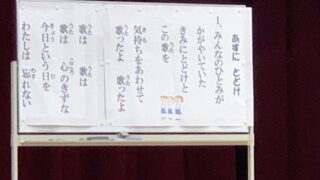 あすに とどけ
1、みんなのひとみが
かがやいていた
きみにとどけと
この歌を
気持ちをあわせて
歌ったよ 歌ったよ
歌は 歌は
歌は 心のきずな
今日という日を
わたしは 忘れない